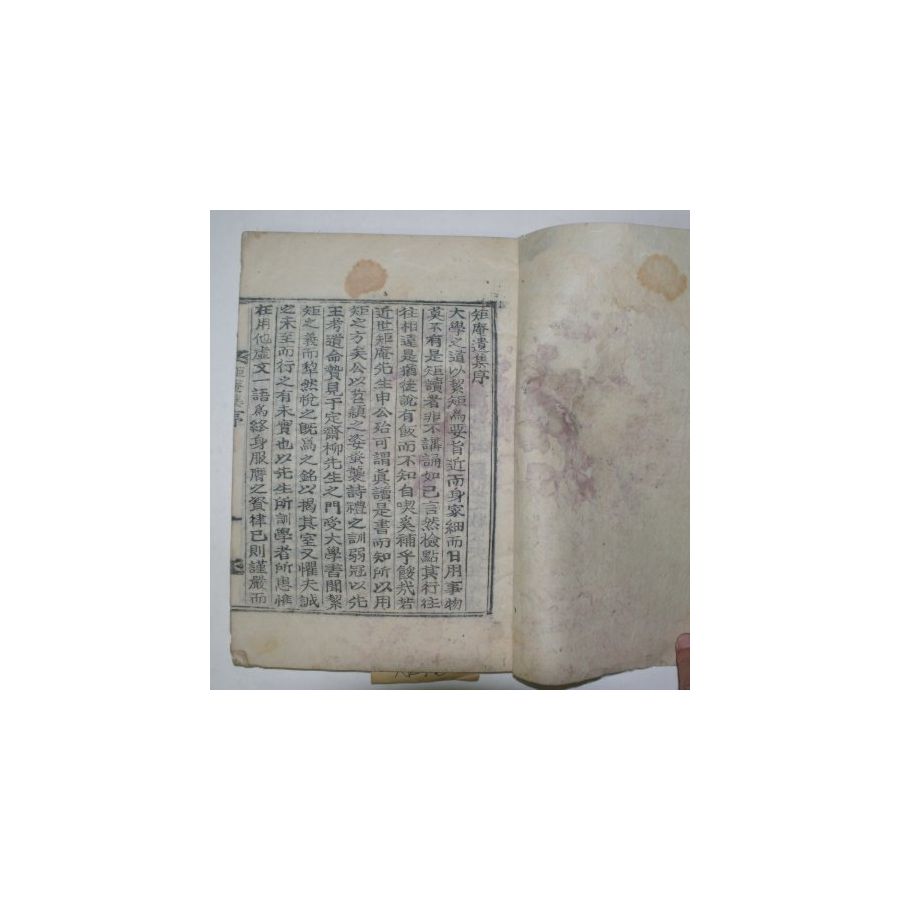 矩庵遺集序
大學之道以絜矩爲要旨近而身家細而日用事物
莫不有是矩讀者非不講誦如已言然檢點其行往
往相違是猶徒說有飯而不知自喫奚補乎餒哉若
近世矩庵先生申公殆可謂眞讀是書而知所以用
矩之方矣公以茗穎之姿蚤襲詩禮之訓弱冠以先
王考遺命贄見于定齋柳先生之門受大學書聞絜
矩之義而犂然悅之旣爲之銘以揭其室又懼夫誠
之未至而行之有未實也以先生所訓學者所患惟
在用他虛文一語爲終身服膺之資律已則謹嚴而
矩庵集序
一